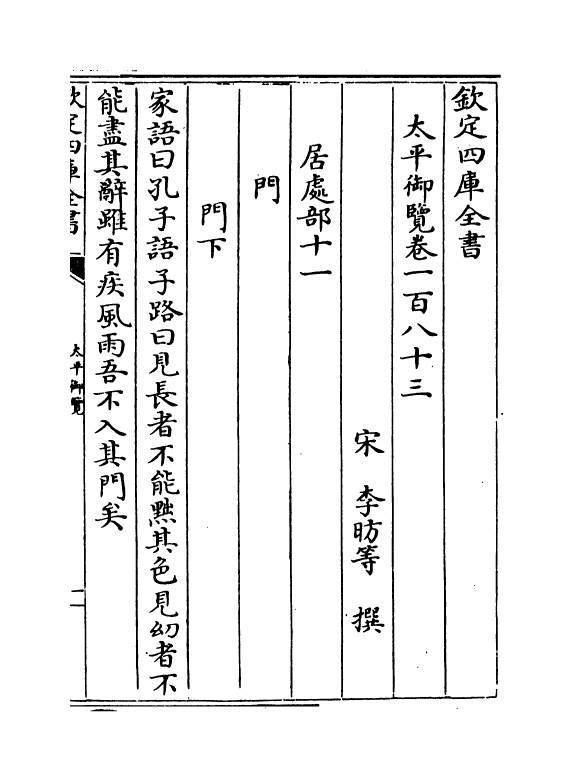 欽定四庫全書
太平御覽卷一百八十三
宋 李昉等 撰
居處部十一
門
門下
家語曰孔子語子路曰見長者不能黜其色見幼者不
能盡其辭雖有疾風雨吾不入其門矣
欽定四庫全書
太平御覽